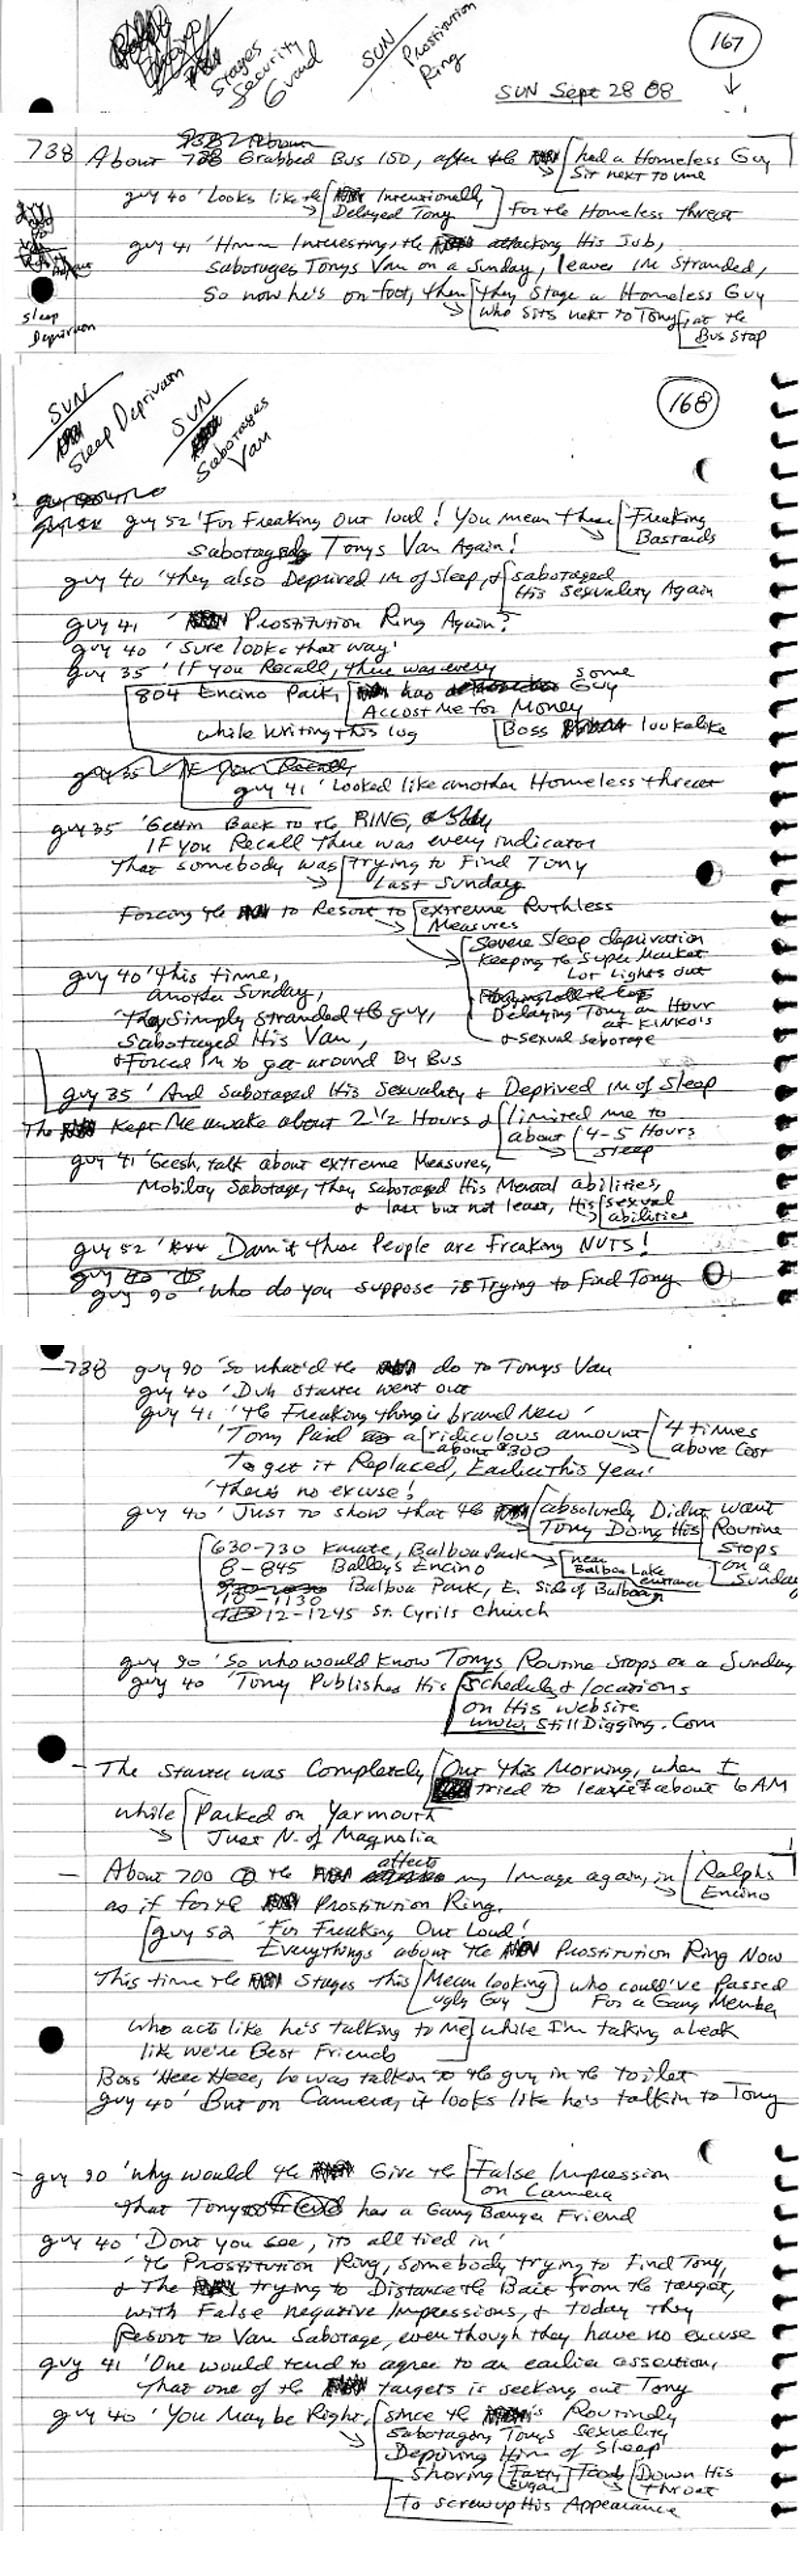 Stages
Security
Guard
SUN
Prostitution
Ring
167
SUN Sept 28 08
738 About 738 Grabbed Bus 150, after the had a Homeless Guy
Sit next to me
guy 40 'Looks like the Intentionally
Delayed Tony for the Homeless threat
guy 41 'Hmmm Interesting, the attacking His Job,
Sabotages Tonys Van on a Sunday, leaves Im Stranded,
So now he's on foot, then they Stage a Homeless Guy
who sits next to Tony, at the
Bus Stop
Sleep
Deprivation
SUN
Sleep Deprivation
SUN
Sabotages
Van
168
guy 52 'For Freaking Out loud! You mean these Freaking
Bastards
Sabotaged Tonys Van Again!
guy 40 'they also Deprived Im of Sleep, & sabotaged
His Sexuality Again
guy 41 ' Prostitution Ring Again?
guy 40 'Sure looks that way'
guy 35 'If you Recall, there was every
804 Encino Park, has some Guy
Accost Me for Money
while Writing this log Boss lookalike
guy 35 If you Recall,
guy 41 'Looked like another Homeless threat
guy 35 'Gettin Back to the RING,
If you Recall There was every indicator
that somebody was trying to Find Tony
Last Sunday
Forcing the to Resort to extreme Ruthless
Measures
Severe Sleep deprivation
Keeping the Super Market
Lot Lights out
guy 40 'this time,
another Sunday,
Delaying Tony an Hour
at KINKO'S
they Simply Stranded the guy,
Sabotaged His Van,
& Sexual Sabotage
& Forced Im to get around By Bus
guy 35 'And Sabotaged His Sexuality & Deprived Im of Sleep
The Kept Me awake about 2 1/2 Hours & limited me to
about 4-5 Hours
Sleep
guy 41 'Geesh, talk about extreme Measures,
Mobility Sabotage, they sabotaged His Mental abilities,
& last but not least, His sexual
abilities
guy 52 ' Damit these People are Freaking NUTS!
guy 90 'Who do you suppose is Trying to Find Tony
738 guy 90 'So what'd the do to Tonys Van
guy 40 'Duh Starter went out
guy 41 'the Freaking thing is brand New'
'Tony Paid a ridiculous amount 4 times
about $300 above Cost
To get it Replaced, Earlier this Year'
'there's no excuse!
guy 40 'Just to show that the absolutely Didnt want
Tony Doing His Routine
Stops
on a
Sunday
630-730 Karate, Balboa Park near
Balboa Lake
entrance
8-845 Balleys Encino
10-1130 Balboa Park, E. Side of Balboa
12-1245 St. Cyrils Church
guy 90 'So who would know Tonys Routine Stops on a Sunday
guy 40 'Tony Publishes His Schedule & locations
on His website
www.StillDigging.Com
- The Starter was Completely Out this Morning, when I
tried to leave about 6 AM
while Parked on Yarmouth
Just N. of Magnolia
- About 700 the affects my Image again, in Ralphs
Encino
as if for the Prostitution Ring.
guy 52 'For Freaking Out Loud!
Everythings about the Prostitution Ring Now
This time the Stages this Mean looking
ugly Guy who could've Passed
For a Gang Member
who acts like he's talking to Me while I'm taking a leak
like We're Best Friends
Boss 'Heee Heee, he was talkin to the guy in the toilet
guy 40 'But on Camera, it looks like he's talkin to Tony
- guy 90 'Why would the Give the False Impression
on Camera
that Tony has a Gang Banger Friend
guy 40 'Dont you see, its all tied in'
'the Prostitution Ring, somebody trying to Find Tony,
& The trying to Distance the Bait from the target,
with False negative Impressions, & today they
Resort to Van Sabotage, even though they have no excuse
guy 41 'One would tend to agree to an earlier assertion,
that one of the targets is seeking out Tony
guy 40 'You May be Right, since the is Routinely
Sabotaging Tonys Sexuality
Depriving Him of Sleep
Shoving Fatty Sugar Foods Down His
throat
To screwup His Appearance